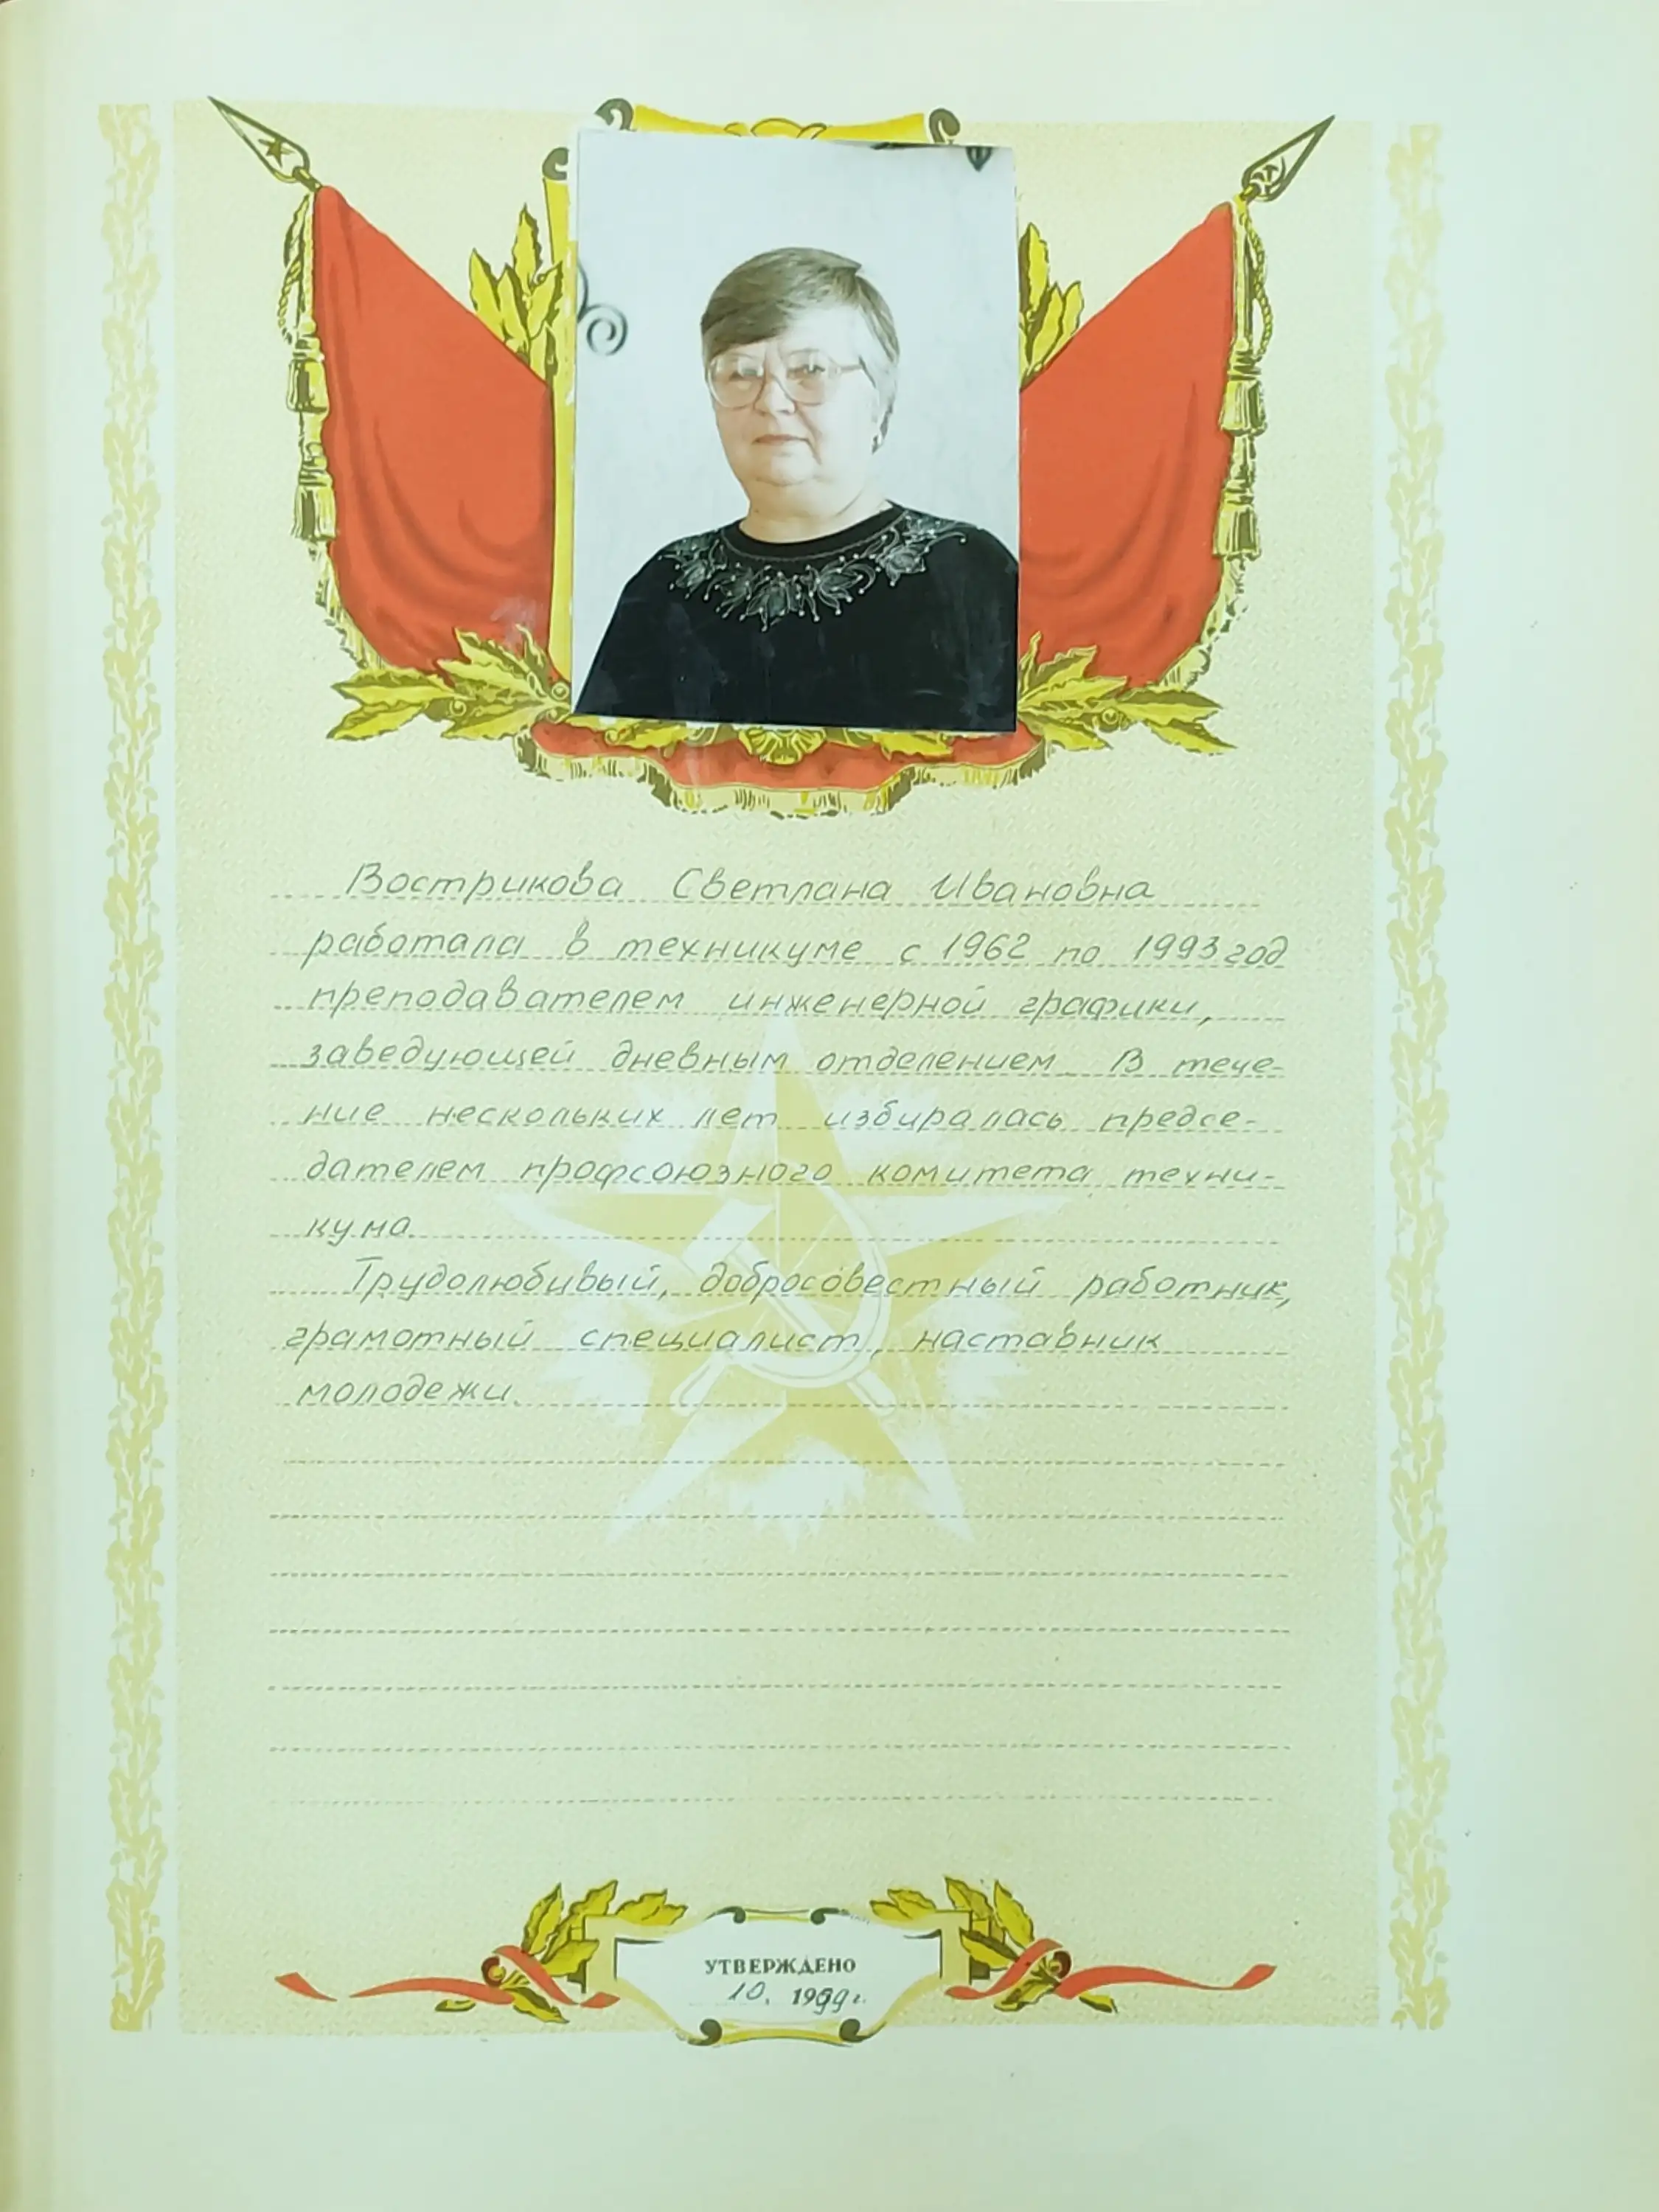 Вострикова Светлана Ивановна
работала в техникуме с 1962 по 1993 год
преподавателем инженерной графики,
заведующей дневным отделением. В тече-
ние нескольких лет избиралась предсе-
дателем профсоюзного комитета техни-
кума.
Трудолюбивый, добросовестный работник,
грамотный специалист, наставник
молодежи.
УТВЕРЖДЕНО
10. 1999 г.